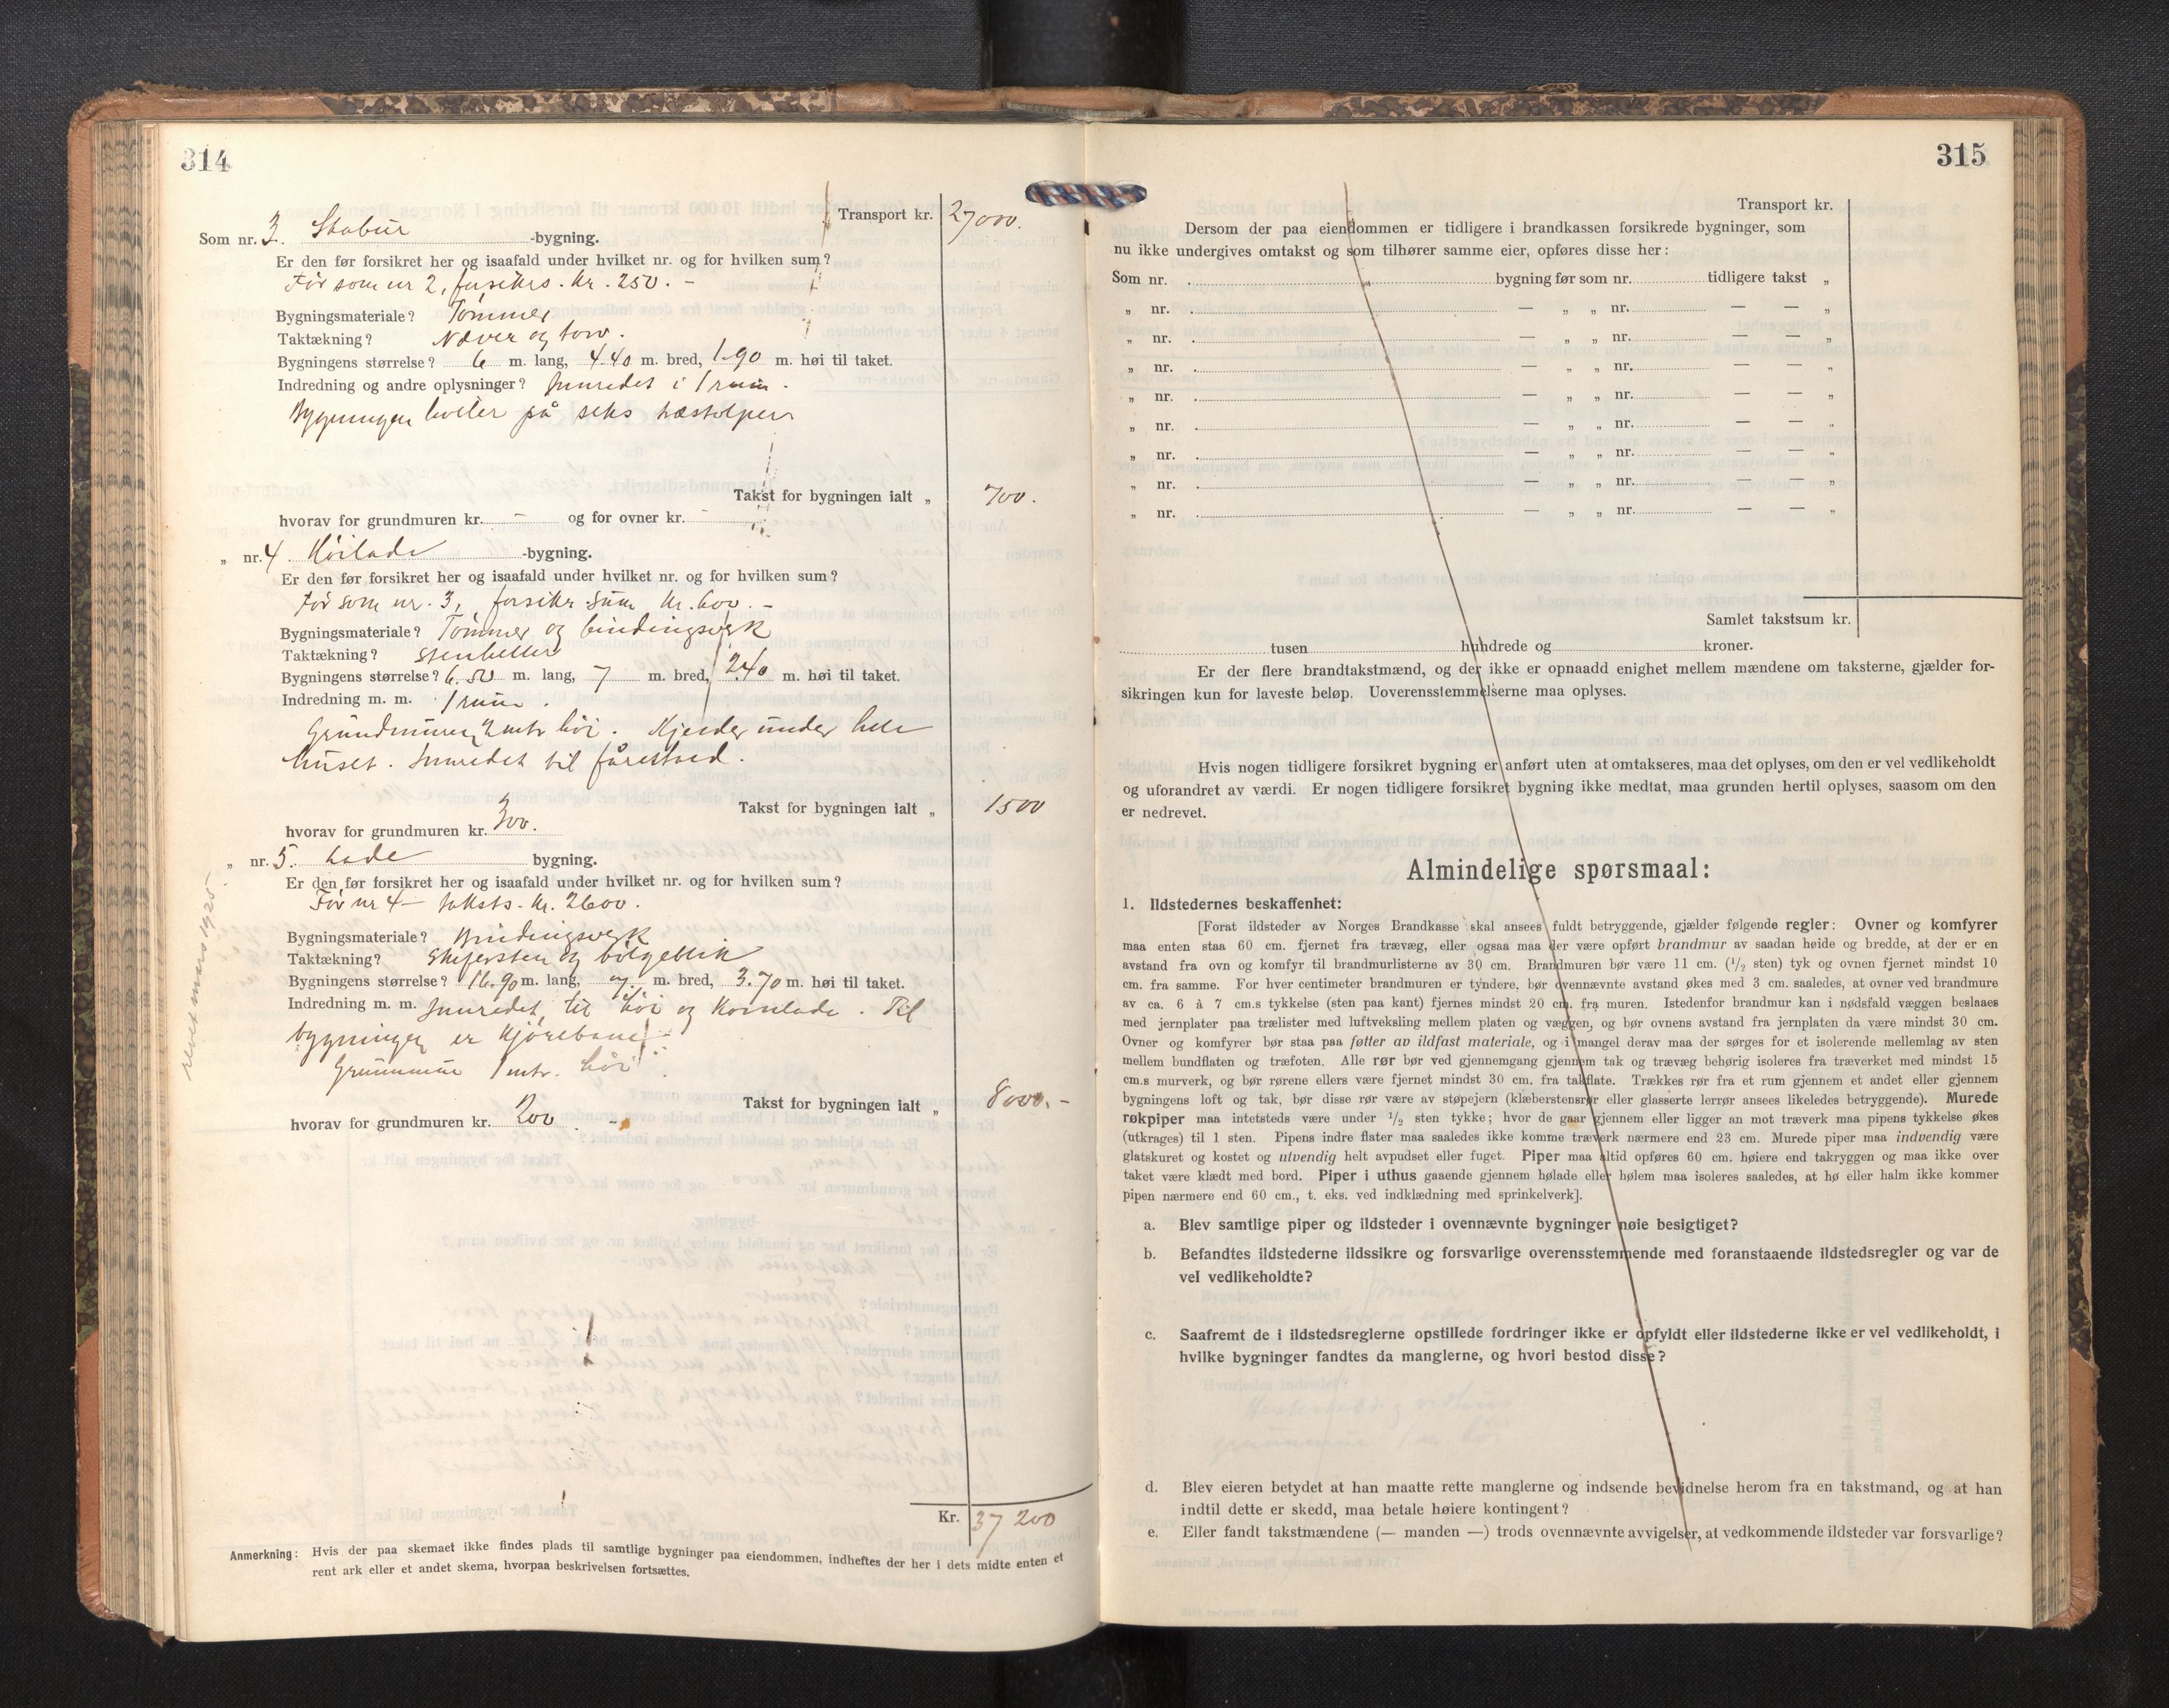 314
Transport kr. 27000.
Som nr. 3. Stabur -bygning.
Er den før forsikret her og isaafald under hvilket nr. og for hvilken sum?
Før som nr 2, forsikrs. Kr. 250. -
Bygningsmateriale? Tømmer
Taktækning? Næver og torv.
Bygningens størrelse? 6 m. lang, 4.40 m. bred, 1.90 m. høi til taket.
Indredning og andre oplysninger? Innredet i 1 rum.
Bygningen hviler på seks træstolper
Takst for bygningen ialt „ 700.
hvorav for grundmuren kr. - og for ovner kr. -
„ nr. 4. Höilade -bygning.
Er den før forsikret her og isaafald under hvilket nr. og for hvilken sum?
Før som nr. 3, forsikr. sum Kr. 600. -
Bygningsmateriale? Tømmer og bindingsverk
Taktækning? Stenheller
Bygningens størrelse? 6.50 m. lang, 7 m. bred, 2.40 m. høi til taket.
Indredning m. m. 1 rum.
Grundmuren 2 mtr höi. Kjeller under hele
huset. Innredet til fårestved.
Takst for bygningen ialt „ 1500
hvorav for grundmuren kr. 300.
„ nr. 5. Lade bygning.
Er den før forsikret her og isaafald under hvilket nr. og for hvilken sum?
Før nr 4 - taksts. Kr. 2600.
Bygningsmateriale? Bindingsverk
Taktækning? Skifersten og bölgeblik
Bygningens størrelse? 16.90 m. lang, 7 m. bred, 3.70 m. høi til taket.
Indredning m. m. Innredet til höi og Kornlade. Til
bygningen er Kjörebane
Grunnmur 1 mtr. höi.
Takst for bygningen ialt „ 8000.-
hvorav for grundmuren kr. 200. -
mars 1925.
Kr. 37 200
Anmerkning: Hvis der paa skemaet ikke findes plads til samtlige bygninger paa eiendommen, indheftes der her i dets midte enten et
rent ark eller et andet skema, hvorpaa beskrivelsen fortsættes.
315
Transport kr.
Dersom der paa eiendommen er tidligere i brandkassen forsikrede bygninger, som
nu ikke undergives omtakst og som tilhører samme eier, opføres disse her:
Som nr. bygning før som nr. tidligere takst „
„ nr. — „ „ nr. — — „
„ nr. — „ „ nr. — — „
„ nr. — „ „ nr. — — „
„ nr. — „ „ nr. — — „
„ nr. — „ „ nr. — — „
„ nr. — „ „ nr. — — „
„ nr. — „ „ nr. — — „
„ nr. — „ „ nr. — — „
Samlet takstsum kr.
tusen hundrede og kroner.
Er der flere brandtakstmænd, og der ikke er opnaadd enighet mellem mændene om taksterne, gjælder for-
sikringen kun for laveste beløp. Uoverensstemmelserne maa oplyses.
Hvis nogen tidligere forsikret bygning er anført uten at omtakseres, maa det oplyses, om den er vel vedlikeholdt
og uforandret av værdi. Er nogen tidligere forsikret bygning ikke medtat, maa grunden hertil oplyses, saasom om den
er nedrevet.
Almindelige spørsmaal:
1. Ildstedernes beskaffenhet:
[Forat ildsteder av Norges Brandkasse skal ansees fuldt betryggende, gjælder følgende regler: Ovner og komfyrer
maa enten staa 60 cm. fjernet fra trævæg, eller ogsaa maa der være opført brandmur av saadan høide og bredde, at der er en
avstand fra ovn og komfyr til brandmurlisterne av 30 cm. Brandmuren bør være 11 cm. (1/2 sten) tyk og ovnen fjernet mindst 10
cm. fra samme. For hver centimeter brandmuren er tyndere, bør ovennævnte avstand økes med 3 cm. saaledes, at ovner ved brandmure
av ca. 6 à 7 cm.s tykkelse (sten paa kant) fjernes mindst 20 cm. fra muren. Istedenfor brandmur kan i nødsfald væggen beslaaes
med jernplater paa trælister med luftveksling mellem platen og væggen, og bør ovnens avstand fra jernplaten da være mindst 30 cm.
Ovner og komfyrer bør staa paa føtter av ildfast materiale, og i mangel derav maa der sørges for et isolerende mellemlag av sten
mellem bundflaten og træfoten. Alle rør bør ved gjennemgang gjennem tak og trævæg behørig isoleres fra træverket med mindst 15
cm.s murverk, og bør rørene ellers være fjernet mindst 30 cm. fra takflate. Trækkes rør fra et rum gjennem et andet eller gjennem
bygningens loft og tak, bør disse rør være av støpejern (klæberstensrør eller glasserte lerrør ansees likeledes betryggende). Murede
røkpiper maa intetsteds være under 1/2 sten tykke; hvor de gaar gjennem eller ligger an mot træverk maa pipens tykkelse økes
(utkrages) til 1 sten. Pipens indre flater maa saaledes ikke komme træverk nærmere end 23 cm. Murede piper maa indvendig være
glatskuret og kostet og utvendig helt avpudset eller fuget. Piper maa altid opføres 60 cm. høiere end takryggen og maa ikke over
taket være klædt med bord. Piper i uthus gaaende gjennem hølade eller hølem maa isoleres saaledes, at hø eller halm ikke kommer
pipen nærmere end 60 cm., t. eks. ved indklædning med sprinkelverk].
a. Blev samtlige piper og ildsteder i ovennævnte bygninger nøie besigtiget?
b. Befandtes ildstederne ildssikre og forsvarlige overensstemmende med foranstaaende ildstedsregler og var de
vel vedlikeholdte?
c. Saafremt de i ildstedsreglerne opstillede fordringer ikke er opfyldt eller ildstederne ikke er vel vedlikeholdt, i
hvilke bygninger fandtes da manglerne, og hvori bestod disse?
d. Blev eieren betydet at han maatte rette manglerne og indsende bevidnelse herom fra en takstmand, og at han
indtil dette er skedd, maa betale høiere kontingent?
e. Eller fandt takstmændene (— manden —) trods ovennævnte avvigelser, at vedkommende ildsteder var forsvarlige?